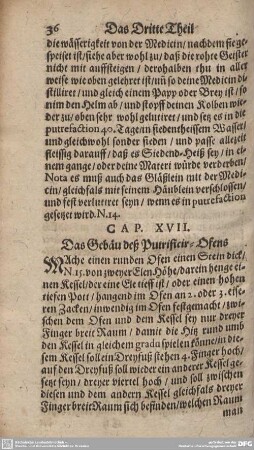 36 Das Dritte Theil
die wässerigkeit von der Medicin / nachdem sie ge-
speiset ist / siehe aber wohl zu / daß die rohte Geister
nicht mit auffsteigen / derohalben thu in aller
weise wie oben gelehret ist / nū so deine Medicin di-
stilliret / und gleich einem Papp oder Brey ist / so
nim den Helm ab / und stopff deinen Kolben wie-
der zu / oben sehr wohl gelutiret / und setz es in die
putrefaction 40. Tage / in siedenheissem Wasser /
und gleichwohl sonder sieden / und passe allezeit
fleissig darauff / daß es Siedend-Heiß sey / in ei-
nem gange / oder deine Materi würde verderben /
Nota es muß auch das Gläßlein mit der Medi-
cin / gleichfals mit seinem Häublein verschlossen /
und fest verlutiret seyn / wenn es in putrefaction
gesetzet wird. N. 14.
CAP. XVII.
Das Gebäu deß Putrificir-Ofens
MAche einen runden Ofen einen Stein dick /
N. 15. von zweyer Elen Höhe / darein henge ei-
nen Kessel / der eine Ele tieff ist / oder einen hohen
tieffen Port / hangend im Ofen an 2. oder 3. eise-
ren Zacken / inwendig im Ofen festgemacht / zwi-
schen dem Ofen und dem Kessel sey nur dreyer
Finger breit Raum / damit die Hitz rund umb
den Kessel in gleichem gradu spielen könne / in die-
sem Kessel soll ein Dreyfuß stehen 4. Finger hoch /
auf den Dreyfuß soll wieder ein anderer Kessel ge-
setzt seyn / dreyer viertel hoch / und soll zwischen
diesen und dem andern Kessel gleichfals dreyer
Finger breit Raum sich befinden / welchen Raum
man